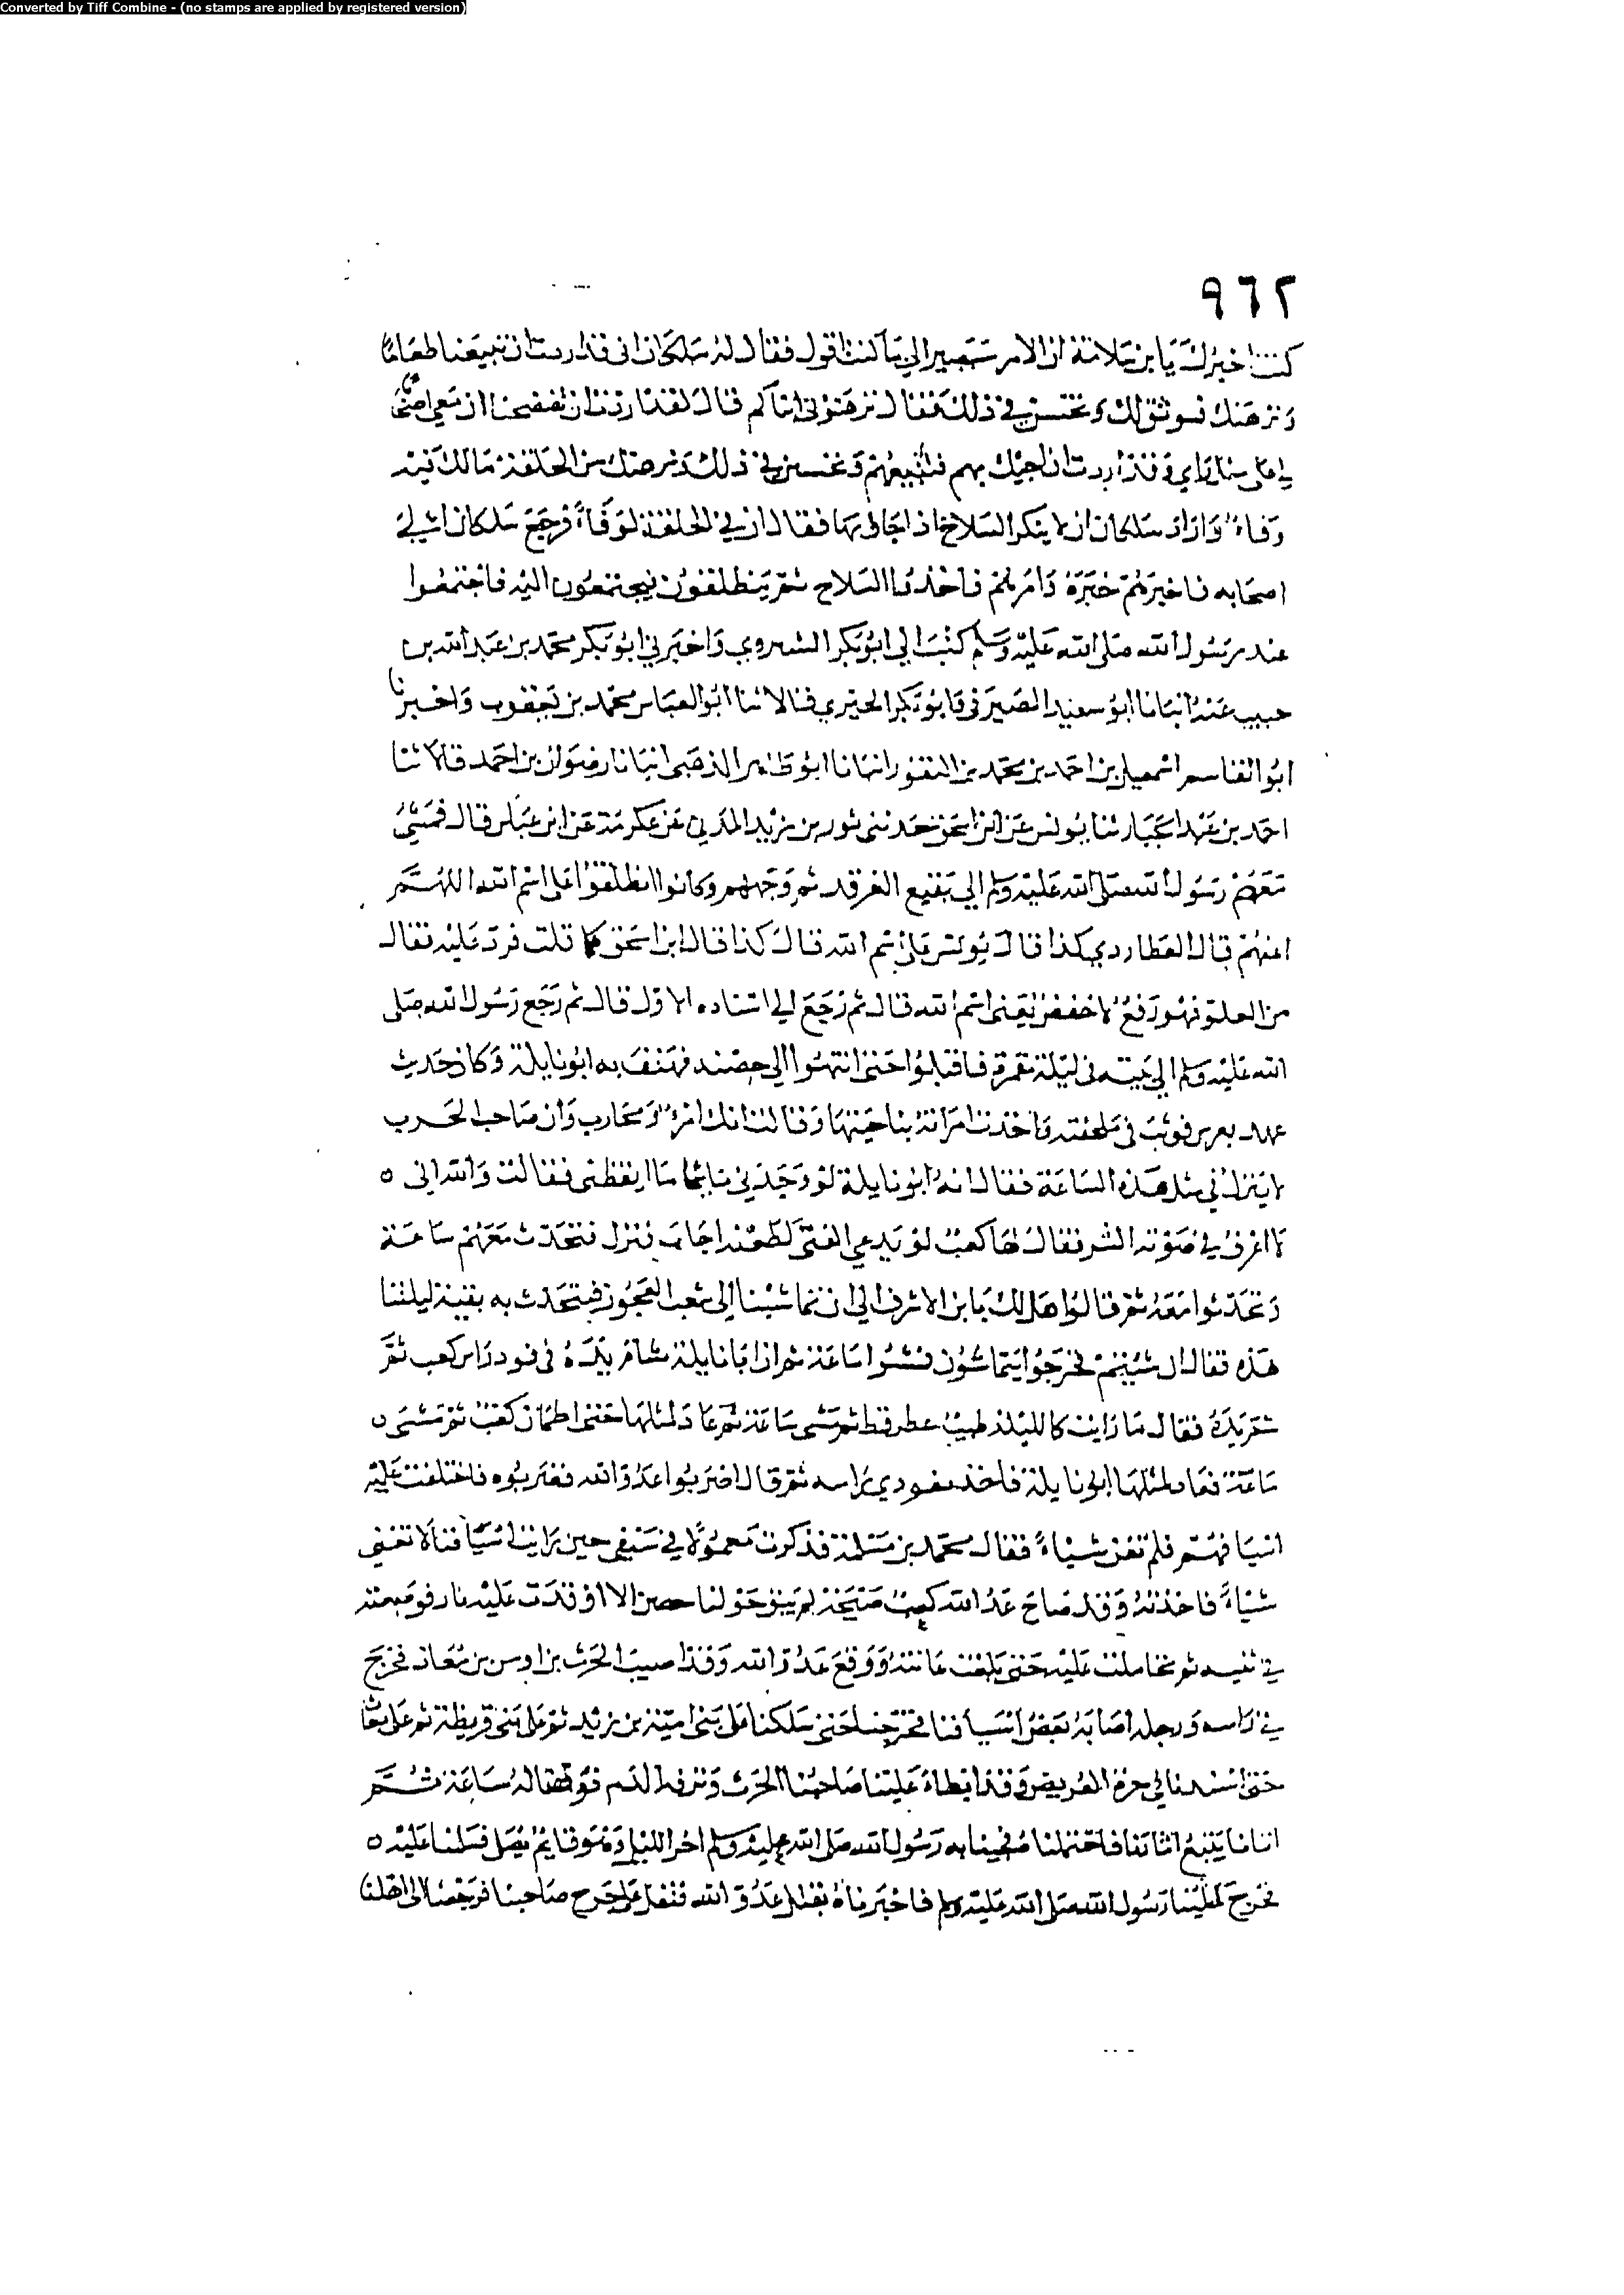 Converted by Tiff Combine - (no stamps are applied by registered version)
٩٦٢
كنت اخبرك يا بن سلامة ان الامر سيصير الى ما كنت اقول فقال له سلكان اني قد اردت ان تبيعنا طعاما
ونرهنك نوثق لك وتحسن في ذلك فقال ترهنوني ابناكم قال لقد اردت ان تفضحنا ان معي اصحابا
لي على مثل راي وقد اردت ان اجيك بهم فتبيعهم وتحسن في ذلك ونرهنك من الحلقة ما لك فيه
وفاء واراد سلكان ان لا ينكر السلاح اذا جاوا بها فقال ان في الحلقة لوفاء فرجع سلكان الى
اصحابه فاخبرهم خبره وامرهم فاخذوا السلاح ثم ينطلقون فيجتمعون اليه فاجتمعوا
عند رسول الله صلى الله عليه وسلم كتب الي ابو بكر الشيروي واخبرني ابو بكر محمد بن عبد الله بن
حبيب عنه انبانا ابو سعيد الصيرفي وابو بكر الحيري قالا ثنا ابو العباس محمد بن يعقوب واخبرنا
ابو القاسم اسمعيل بن احمد بن محمد بن النقور انبانا ابو طاهر الذهبي انبانا رضوان بن احمد قالا ثنا
احمد بن عبد الجبار ثنا يونس عن ابن اسحق حدثني ثور بن يزيد المدني عن عكرمة عن ابن عباس قال فمشى
معهم رسول الله صلى الله عليه وسلم الى بقيع الغرقد ثم وجههم وكانوا انطلقوا على اسم الله اللهم
اعنهم قال العطاردي كذا قال يونس على اسم الله قال كذا قال ابن اسحق قلت فرد عليه فقال
من العلو فهو رفع لا خفض يعني اسم الله قال ثم رجع الى اسناده الاول قال ثم رجع رسول الله صلى
الله عليه وسلم الى بيته في ليلة مقمرة فاقبلوا حتى انتهوا الى حصنه فهتف به ابو نايلة وكان حديث
عهد بعرس فوثب في ملحفته واخذت امراته بناحيتها وقالت انك امرؤ محارب وان صاحب الحرب
لا ينزل في مثل هذه الساعة فقال انه ابو نايلة لو وجدني نايما ما ايقظني فقالت والله اني ه
لا اعرف في صوته الشر فقال لها كعب لو يدعى الفتى لطعنه اجاب فنزل فتحدث معهم ساعة
وتحدثوا معه ثم قالوا هل لك يا بن الاشرف الى ان نتماشينا الى شعب العجوز فنتحدث به بقية ليلتنا
هذه فقال ان شيتم فخرجوا يتماشون فمشوا ساعة ثم ان ابا نايلة شام يده في فود راس كعب ثم
شم يده فقال ما رايت كالليلة طيب عطر قط ثم مشى ساعة ثم عاد لمثلها حتى اطمان كعب ثم مشى ه
ساعة فعاد لمثلها ابو نايلة فاخذ بفودي راسه ثم قال اضربوا عدو الله فضربوه فاختلفت عليه
اسيافهم فلم تغن شياء فقال محمد بن مسلمة فذكرت معمولا في سيفي حين رايت اسيافنا لا تغني
شياء فاخذته وقد صاح عدو الله كعب صيحة لم يبق حولنا حصن الا اوقدت عليه نار فوضعته
في ثنيه ثم تحاملت عليه حتى بلغت عانته ووقع عدو الله وقد اصيب الحرث بن اوس بن معاذ فجرح
في راسه ورجله اصابه بعض اسيافنا فخرجنا حتى سلكنا على بني امية بن زيد ثم على بني قريظة ثم على بعاث
حتى اسندنا في حرة العريض وقد ابطاء علينا صاحبنا الحرث ونزفه الدم فوقفنا له ساعة ثم
اتانا يتبع اثارنا فاحتملنا فجينا به رسول الله صلى الله عليه وسلم اخر الليل وهو قايم يصلي فسلمنا عليه ه
فخرج الينا رسول الله صلى الله عليه وسلم فاخبرناه بقتل عدو الله فتفل على جرح صاحبنا فرجعنا الى اهلنا